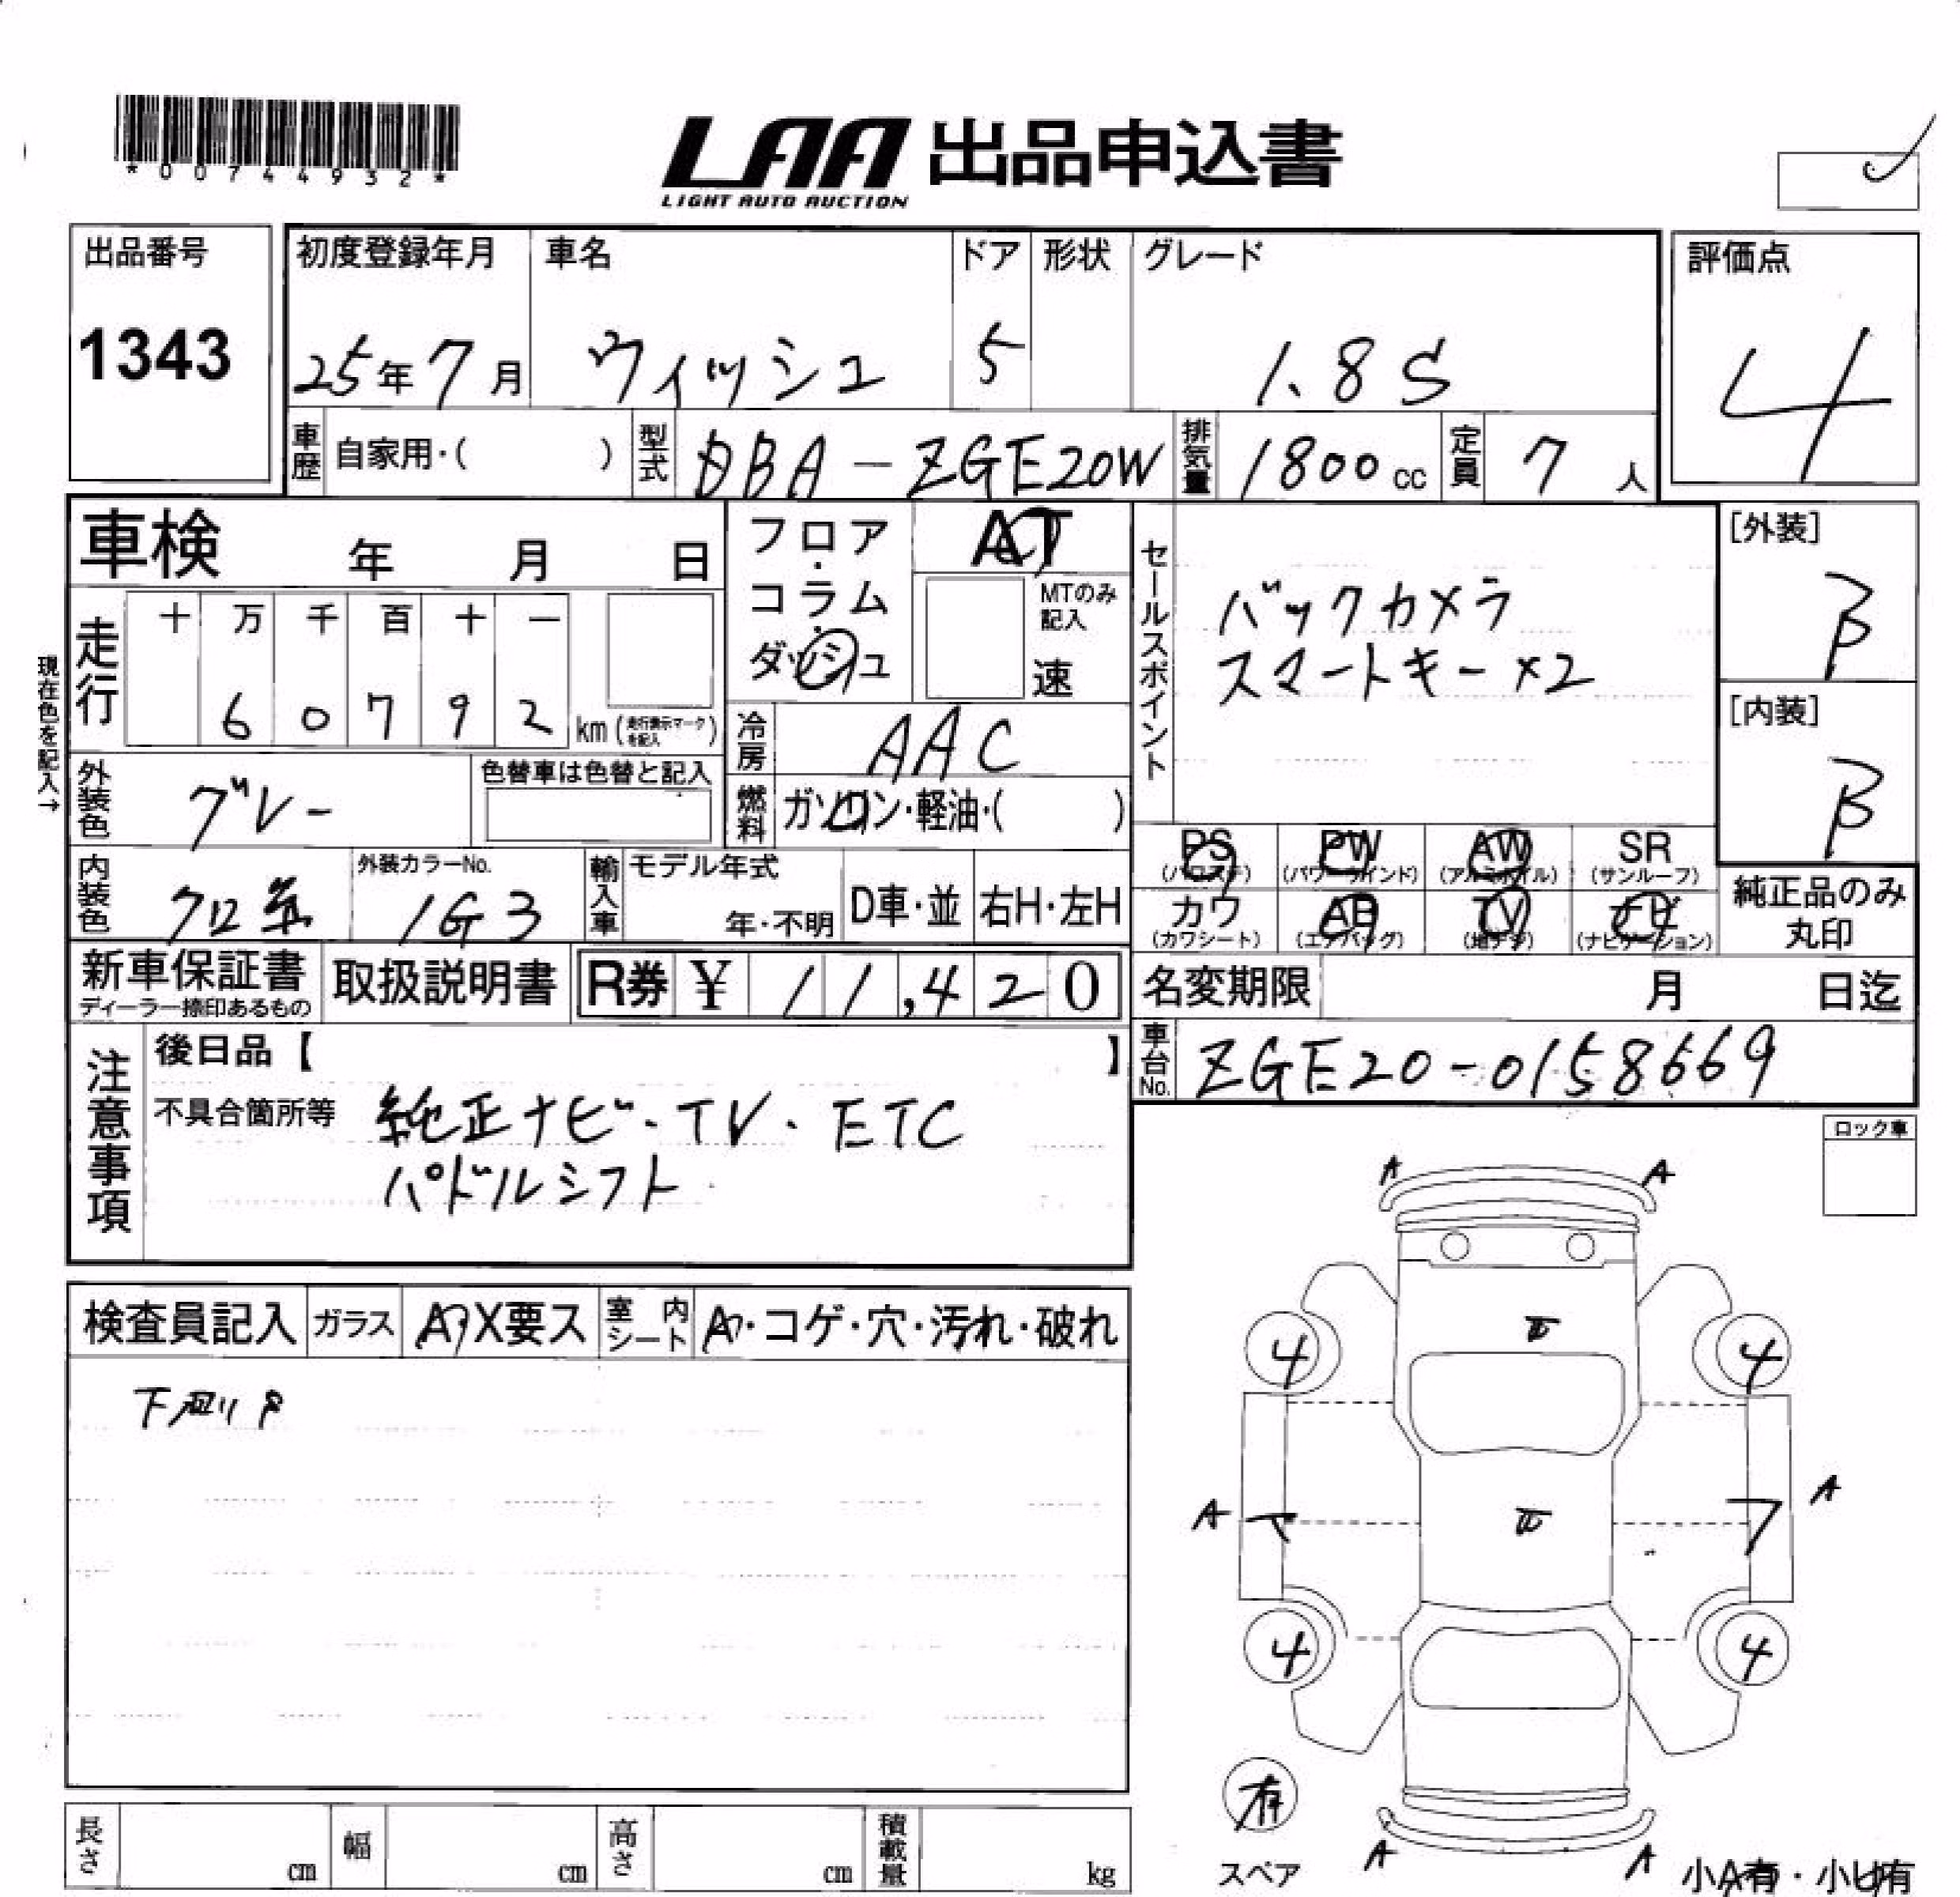 *00744932*
LAA 出品申込書
LIGHT AUTO AUCTION
出品番号
1343
初度登録年月
25年7月
車名
ウィッシュ
ドア
5
形状
グレード
1.8S
評価点
4
車歴
自家用・( )
型式
DBA-ZGE20W
排気量
1800cc
定員
7人
車検 年 月 日
フロア・コラム・ダッシュ
AT
MTのみ記入
速
セールスポイント
バックカメラ
スマートキー×2
[外装]
B
[内装]
B
現在色を記入→
走行
十 万 千 百 十 一
6 0 7 9 2 km (走行表示マークを記入)
冷房
AAC
外装色
グレー
色替車は色替と記入
燃料
ガソリン・軽油・( )
PS (パワステ)
PW (パワーウインド)
AW (アルミホイル)
SR (サンルーフ)
カワ (カワシート)
AB (エアバッグ)
TV (地デジ)
ナビ (ナビゲーション)
純正品のみ丸印
内装色
クロ
外装カラーNo.
1G3
輸入車
モデル年式
年・不明
D車・並
右H・左H
新車保証書
ディーラー捺印あるもの
取扱説明書
R券 ¥ 11,420
名変期限 月 日迄
車台No.
ZGE20-0158669
注意事項
後日品【 】
不具合箇所等 純正ナビ・TV・ETC
パドルシフト
ロック車
検査員記入
ガラス
A・X要ス
室内シート
A・コゲ・穴・汚れ・破れ
A A
4 4
A A
4 4
有
スペア
A A
小A有・小U有
長さ cm
幅 cm
高さ cm
積載量 kg